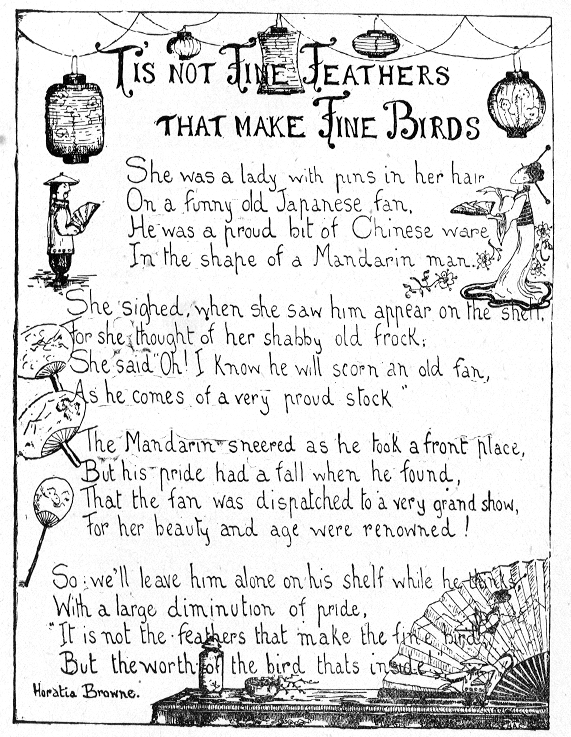 TIS NOT FINE FEATHERS
THAT MAKE FINE BIRDS
She was a lady with pins in her hair
On a funny old Japanese fan,
He was a proud bit of Chinese ware
In the shape of a Mandarin man.
She sighed, when she saw him appear on the shelf,
For she thought of her shabby old frock;
She said "Oh! I know he will scorn an old fan,
As he comes of a very proud stock"
The Mandarin sneered as he took a front place,
But his pride had a fall when he found,
That the fan was dispatched to a very grand show,
For her beauty and age were renowned!
So we'll leave him alone on his shelf while he thinks
With a large diminution of pride,
"It is not the feathers that make the fine bird,
But the worth of the bird thats inside"
Horatia Browne.